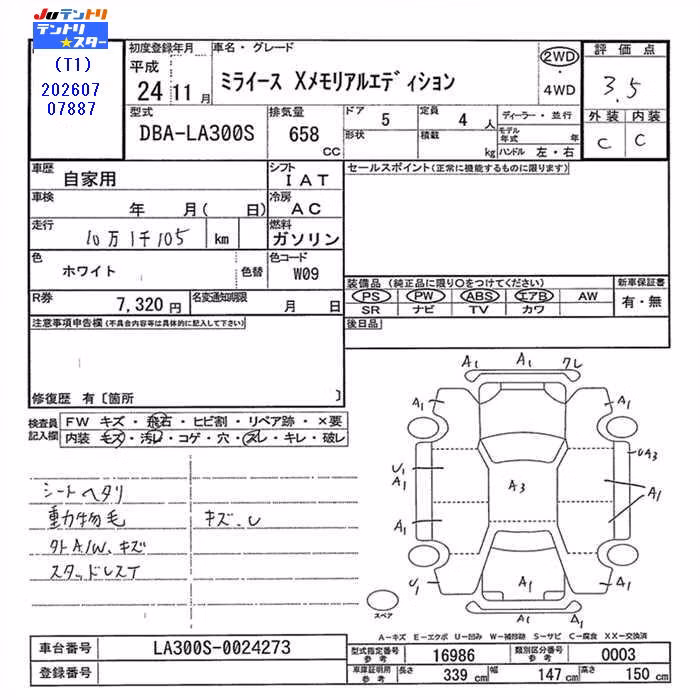 Juテントリ
テントリ★スター
(T1)
202607
07887
初度登録年月
平成
24 11 月
車名・グレード
ミライース Xメモリアルエディション
2WD
・
4WD
評価点
3.5
外装 内装
C C
型式
DBA-LA300S
排気量
658
CC
ドア 5
形状
定員 4 人
積載 kg
ディーラー・並行
モデル年式 年
ハンドル 左・右
車歴 自家用
シフト IAT
車検 年 月( 日)
冷房 AC
走行 10万1千105 km
燃料 ガソリン
色 ホワイト 色替
色コード W09
R券 7,320 円
名変通知期限 月 日
セールスポイント(正常に機能するものに限ります)
装備品 (純正品に限り○をつけてください)
PS PW ABS エアB AW
SR ナビ TV カワ
新車保証書
有・無
後日品
注意事項申告欄(不具合内容等は具体的に記入して下さい)
修復歴 有〔箇所 〕
検査員記入欄
FW キズ・飛石・ヒビ割・リペア跡・×要
内装 モズ・汚レ・コゲ・穴・スレ・キレ・破レ
シートヘタリ
動物毛
キズ、U
外A/W、キズ
スタッドレスT
A1 A1 クレ
A1 A1
UA3
U1
A1
A3
A1
A1
U1 A1 A1
A1
スペア
A−キズ E−エクボ U−凹み W−補修跡 S−サビ C−腐食 XX−交換済
車台番号 LA300S-0024273
登録番号
型式指定番号 参考 16986
類別区分番号 参考 0003
車庫証明用 参考 長さ 339 cm 幅 147 cm 高さ 150 cm